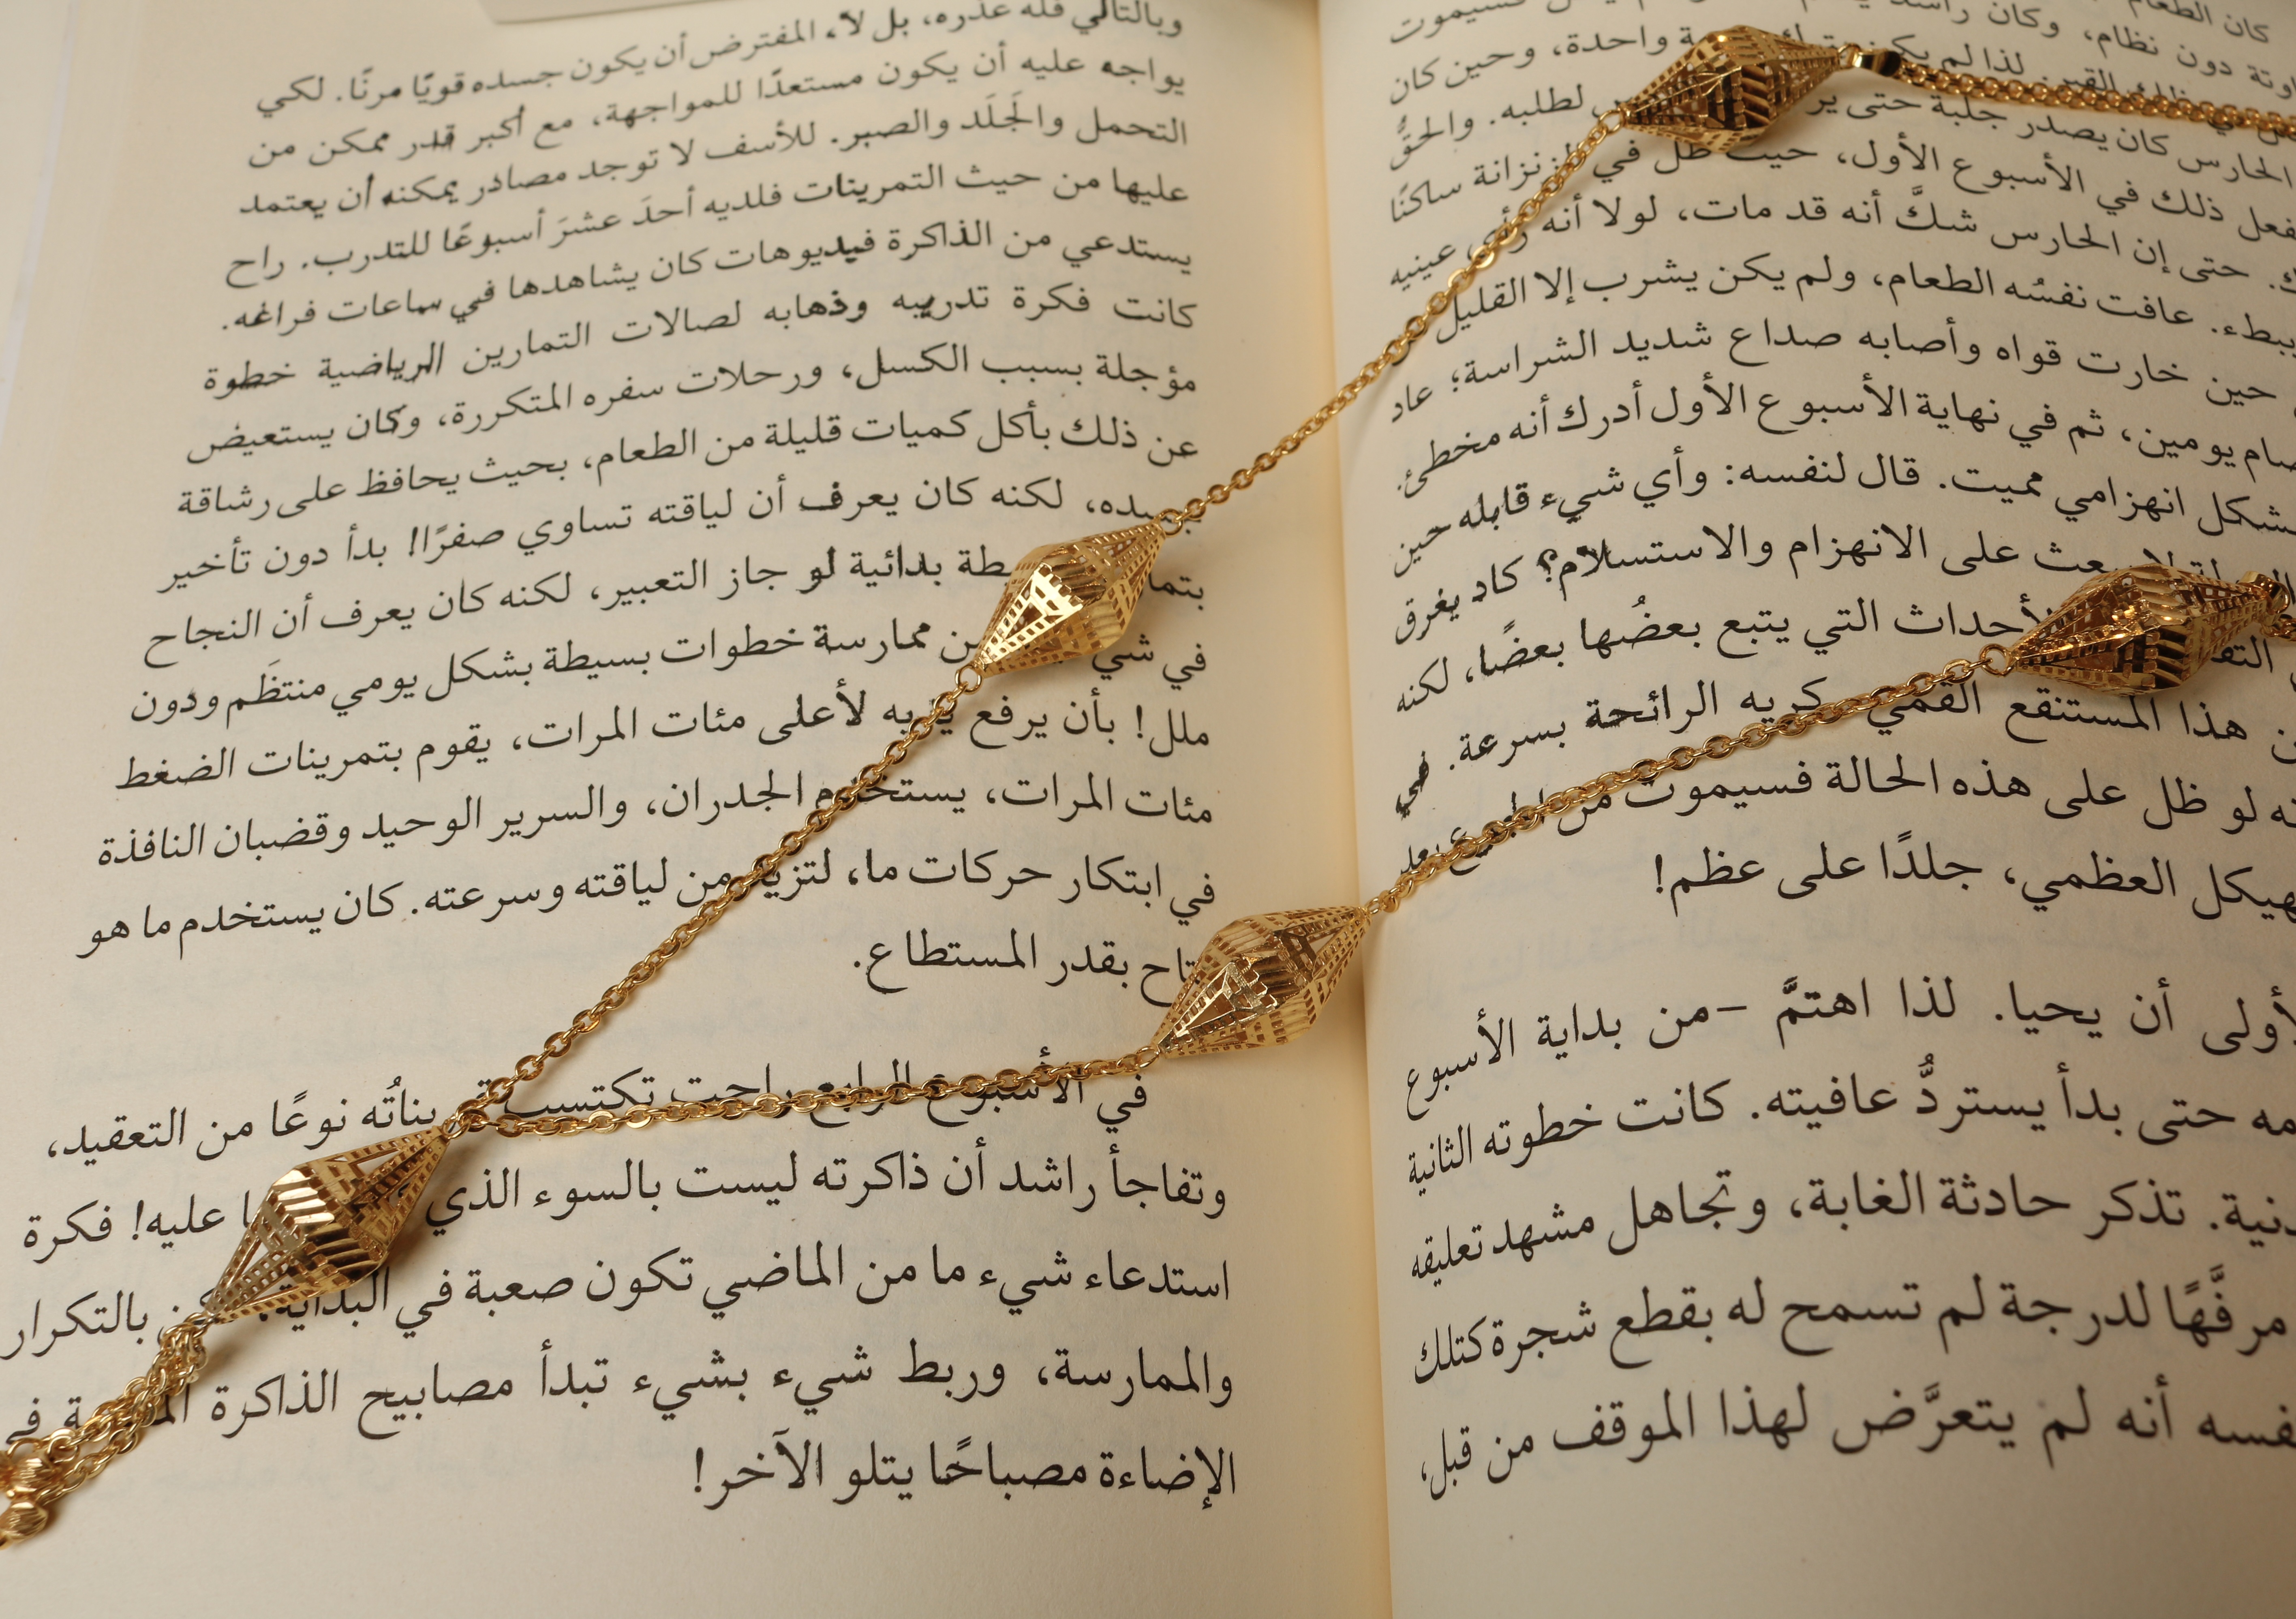 كان الطعام فسيموت
دون نظام، وكان راشد واحدة، وحين كان
الحارس كان يصدر جلبة حتى لطلبه. والحقُّ
ذلك في الأسبوع الأول، حيث ظل في الزنزانة ساكنًا
حتى إن الحارس شكَّ أنه قد مات، لولا أنه رأى عينيه
ببطء. عافت نفسُه الطعام، ولم يكن يشرب إلا القليل
حين خارت قواه وأصابه صداع شديد الشراسة؛ عاد
يومين، ثم في نهاية الأسبوع الأول أدرك أنه مخطئ.
بشكل انهزامي مميت. قال لنفسه: وأي شيء قابله حين
على الانهزام والاستسلام؟ كاد يغرق
الأحداث التي يتبع بعضُها بعضًا، لكنه
هذا المستنقع القميء كريه الرائحة بسرعة. في
لو ظل على هذه الحالة فسيموت من
العظمي، جلدًا على عظم!
أن يحيا. لذا اهتمَّ -من بداية الأسبوع
حتى بدأ يستردُّ عافيته. كانت خطوته الثانية
تذكر حادثة الغابة، وتجاهل مشهد تعليقه
مرفَّهًا لدرجة لم تسمح له بقطع شجرة كتلك
أنه لم يتعرَّض لهذا الموقف من قبل،
وبالتالي فله عذره، بل لا، المفترض أن يكون جسده قويًا مرنًا. لكي
يواجه عليه أن يكون مستعدًا للمواجهة، مع أكبر قدر ممكن من
التحمل والجَلَد والصبر. للأسف لا توجد مصادر يمكنه أن يعتمد
عليها من حيث التمرينات فلديه أحدَ عشرَ أسبوعًا للتدرب. راح
يستدعي من الذاكرة فيديوهات كان يشاهدها في ساعات فراغه.
كانت فكرة تدريبه وذهابه لصالات التمارين الرياضية خطوة
مؤجلة بسبب الكسل، ورحلات سفره المتكررة، وكان يستعيض
عن ذلك بأكل كميات قليلة من الطعام، بحيث يحافظ على رشاقة
جسده، لكنه كان يعرف أن لياقته تساوي صفرًا! بدأ دون تأخير
بدائية لو جاز التعبير، لكنه كان يعرف أن النجاح
في من ممارسة خطوات بسيطة بشكل يومي منتظَم ودون
ملل! بأن يرفع يديه لأعلى مئات المرات، يقوم بتمرينات الضغط
مئات المرات، يستخدم الجدران، والسرير الوحيد وقضبان النافذة
في ابتكار حركات ما، لتزيد من لياقته وسرعته. كان يستخدم ما هو
متاح بقدر المستطاع.
في الأسبوع الرابع راحت تكتسب تمريناتُه نوعًا من التعقيد،
وتفاجأ راشد أن ذاكرته ليست بالسوء الذي عليه! فكرة
استدعاء شيء ما من الماضي تكون صعبة في البداية، لكن بالتكرار
والممارسة، وربط شيء بشيء تبدأ مصابيح الذاكرة في
الإضاءة مصباحًا يتلو الآخر!